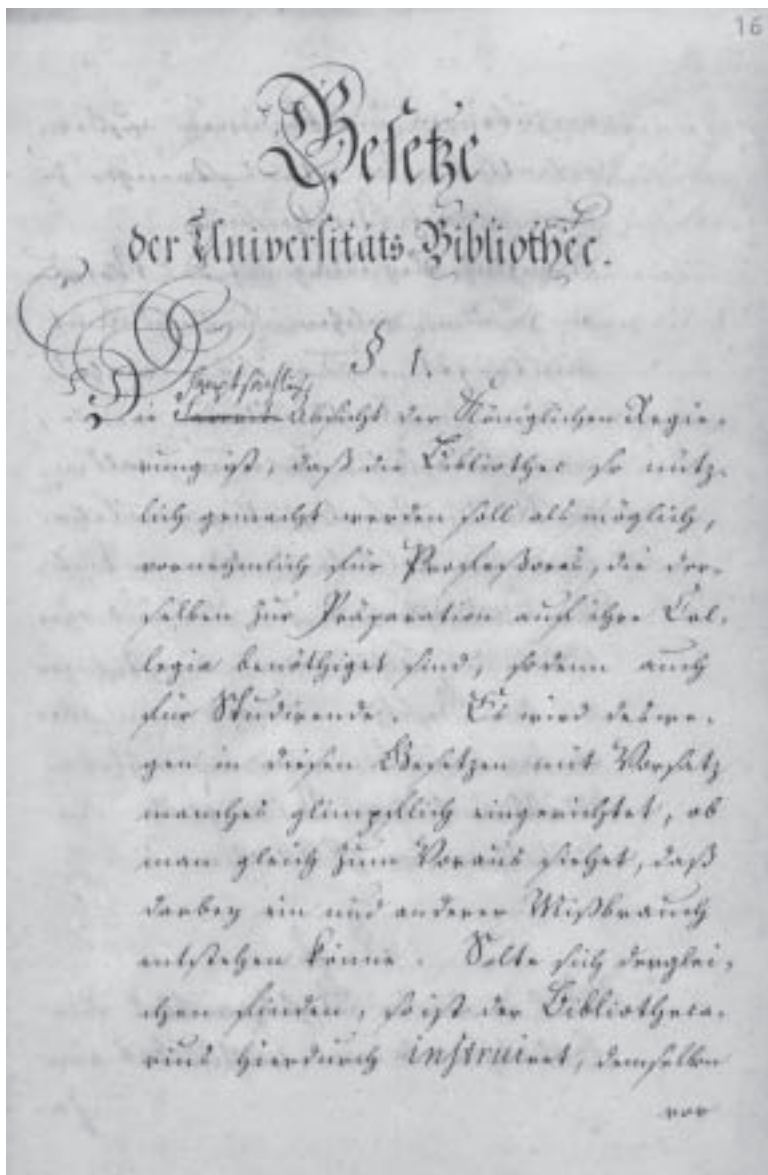 16
Gesetze
der Universitäts-Bibliothec.
§ 1.
hauptsächlichste
Die Absicht der Königlichen Regie-
rung ist, daß die Bibliothec so nütz-
lich gemacht werden soll als möglich,
vornehmlich für Professores, die der-
selben zur Präparation auf ihre Col-
legia benöthiget sind, sodenn auch
für Studirende. Es wird deswe-
gen in diesen Gesetzen mit Vorsatz
manches glimpflich eingerichtet, ob
man gleich zum Voraus siehet, daß
darbey ein und anderer Mißbrauch
entstehen könne. Solte sich derglei-
chen finden, so ist der Bibliotheca-
rius hierdurch instruiret, demselben
vor